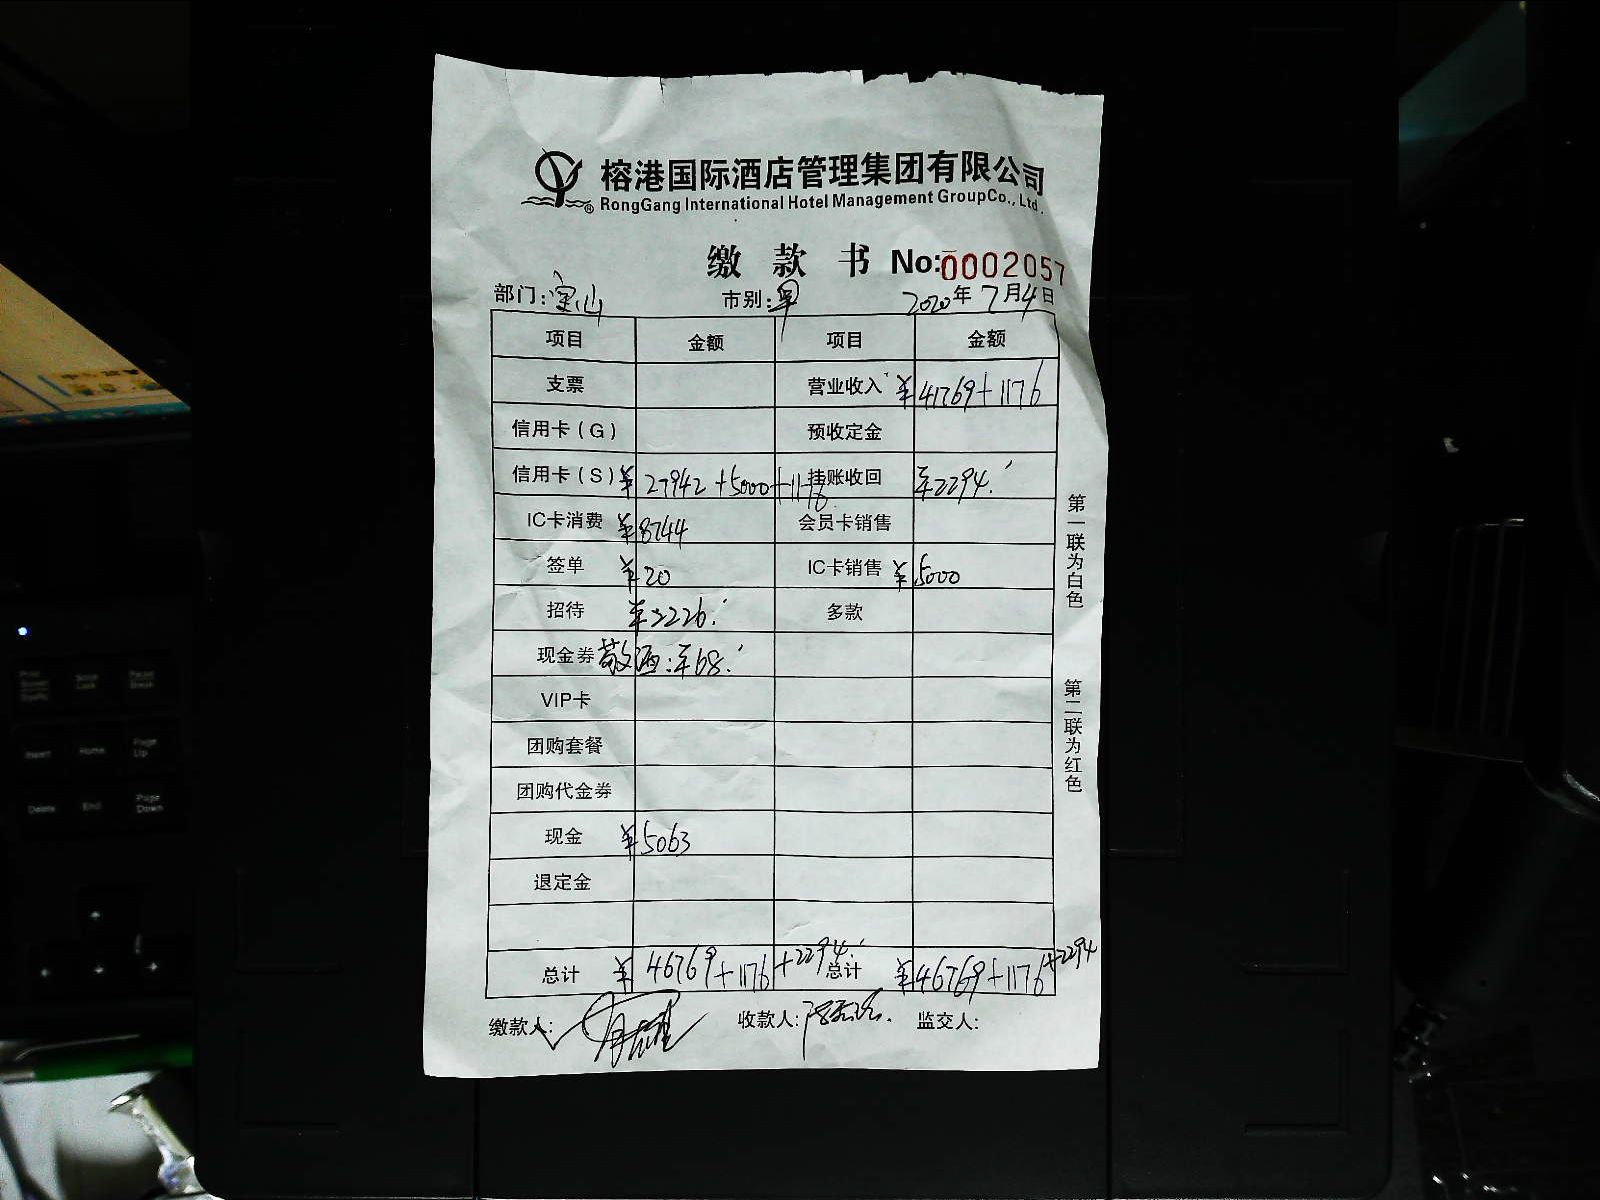 榕港国际酒店管理集团有限公司
RongGang International Hotel Management GroupCo., Ltd.
缴款书 No:0002057
部门:宝山 市别:早 2020年7月4日
项目 金额 项目 金额
支票 营业收入 ¥41769+1176
信用卡(G) 预收定金
信用卡(S) ¥27942+5000+1176 挂账收回 ¥2294.
IC卡消费 ¥8744 会员卡销售
签单 ¥20 IC卡销售 ¥5000
招待 ¥2226. 多款
现金券 敬酒:¥68.
VIP卡
团购套餐
团购代金券
现金 ¥5063
退定金
总计 ¥46769+1176+2294. 总计 ¥46769+1176+2294
缴款人: 收款人: 监交人:
第一联为白色
第二联为红色
Insert Home Page Up
Delete End Page Down